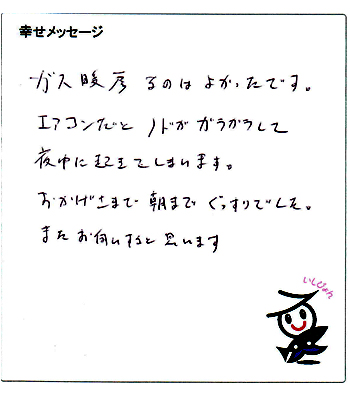 幸せメッセージ
ガス暖房るのはよかったです。
エアコンだとノドがガラガラして
夜中に起きてしまいます。
おかげさまで朝までぐっすりでした。
またお伺いすると思います
いしぴょん